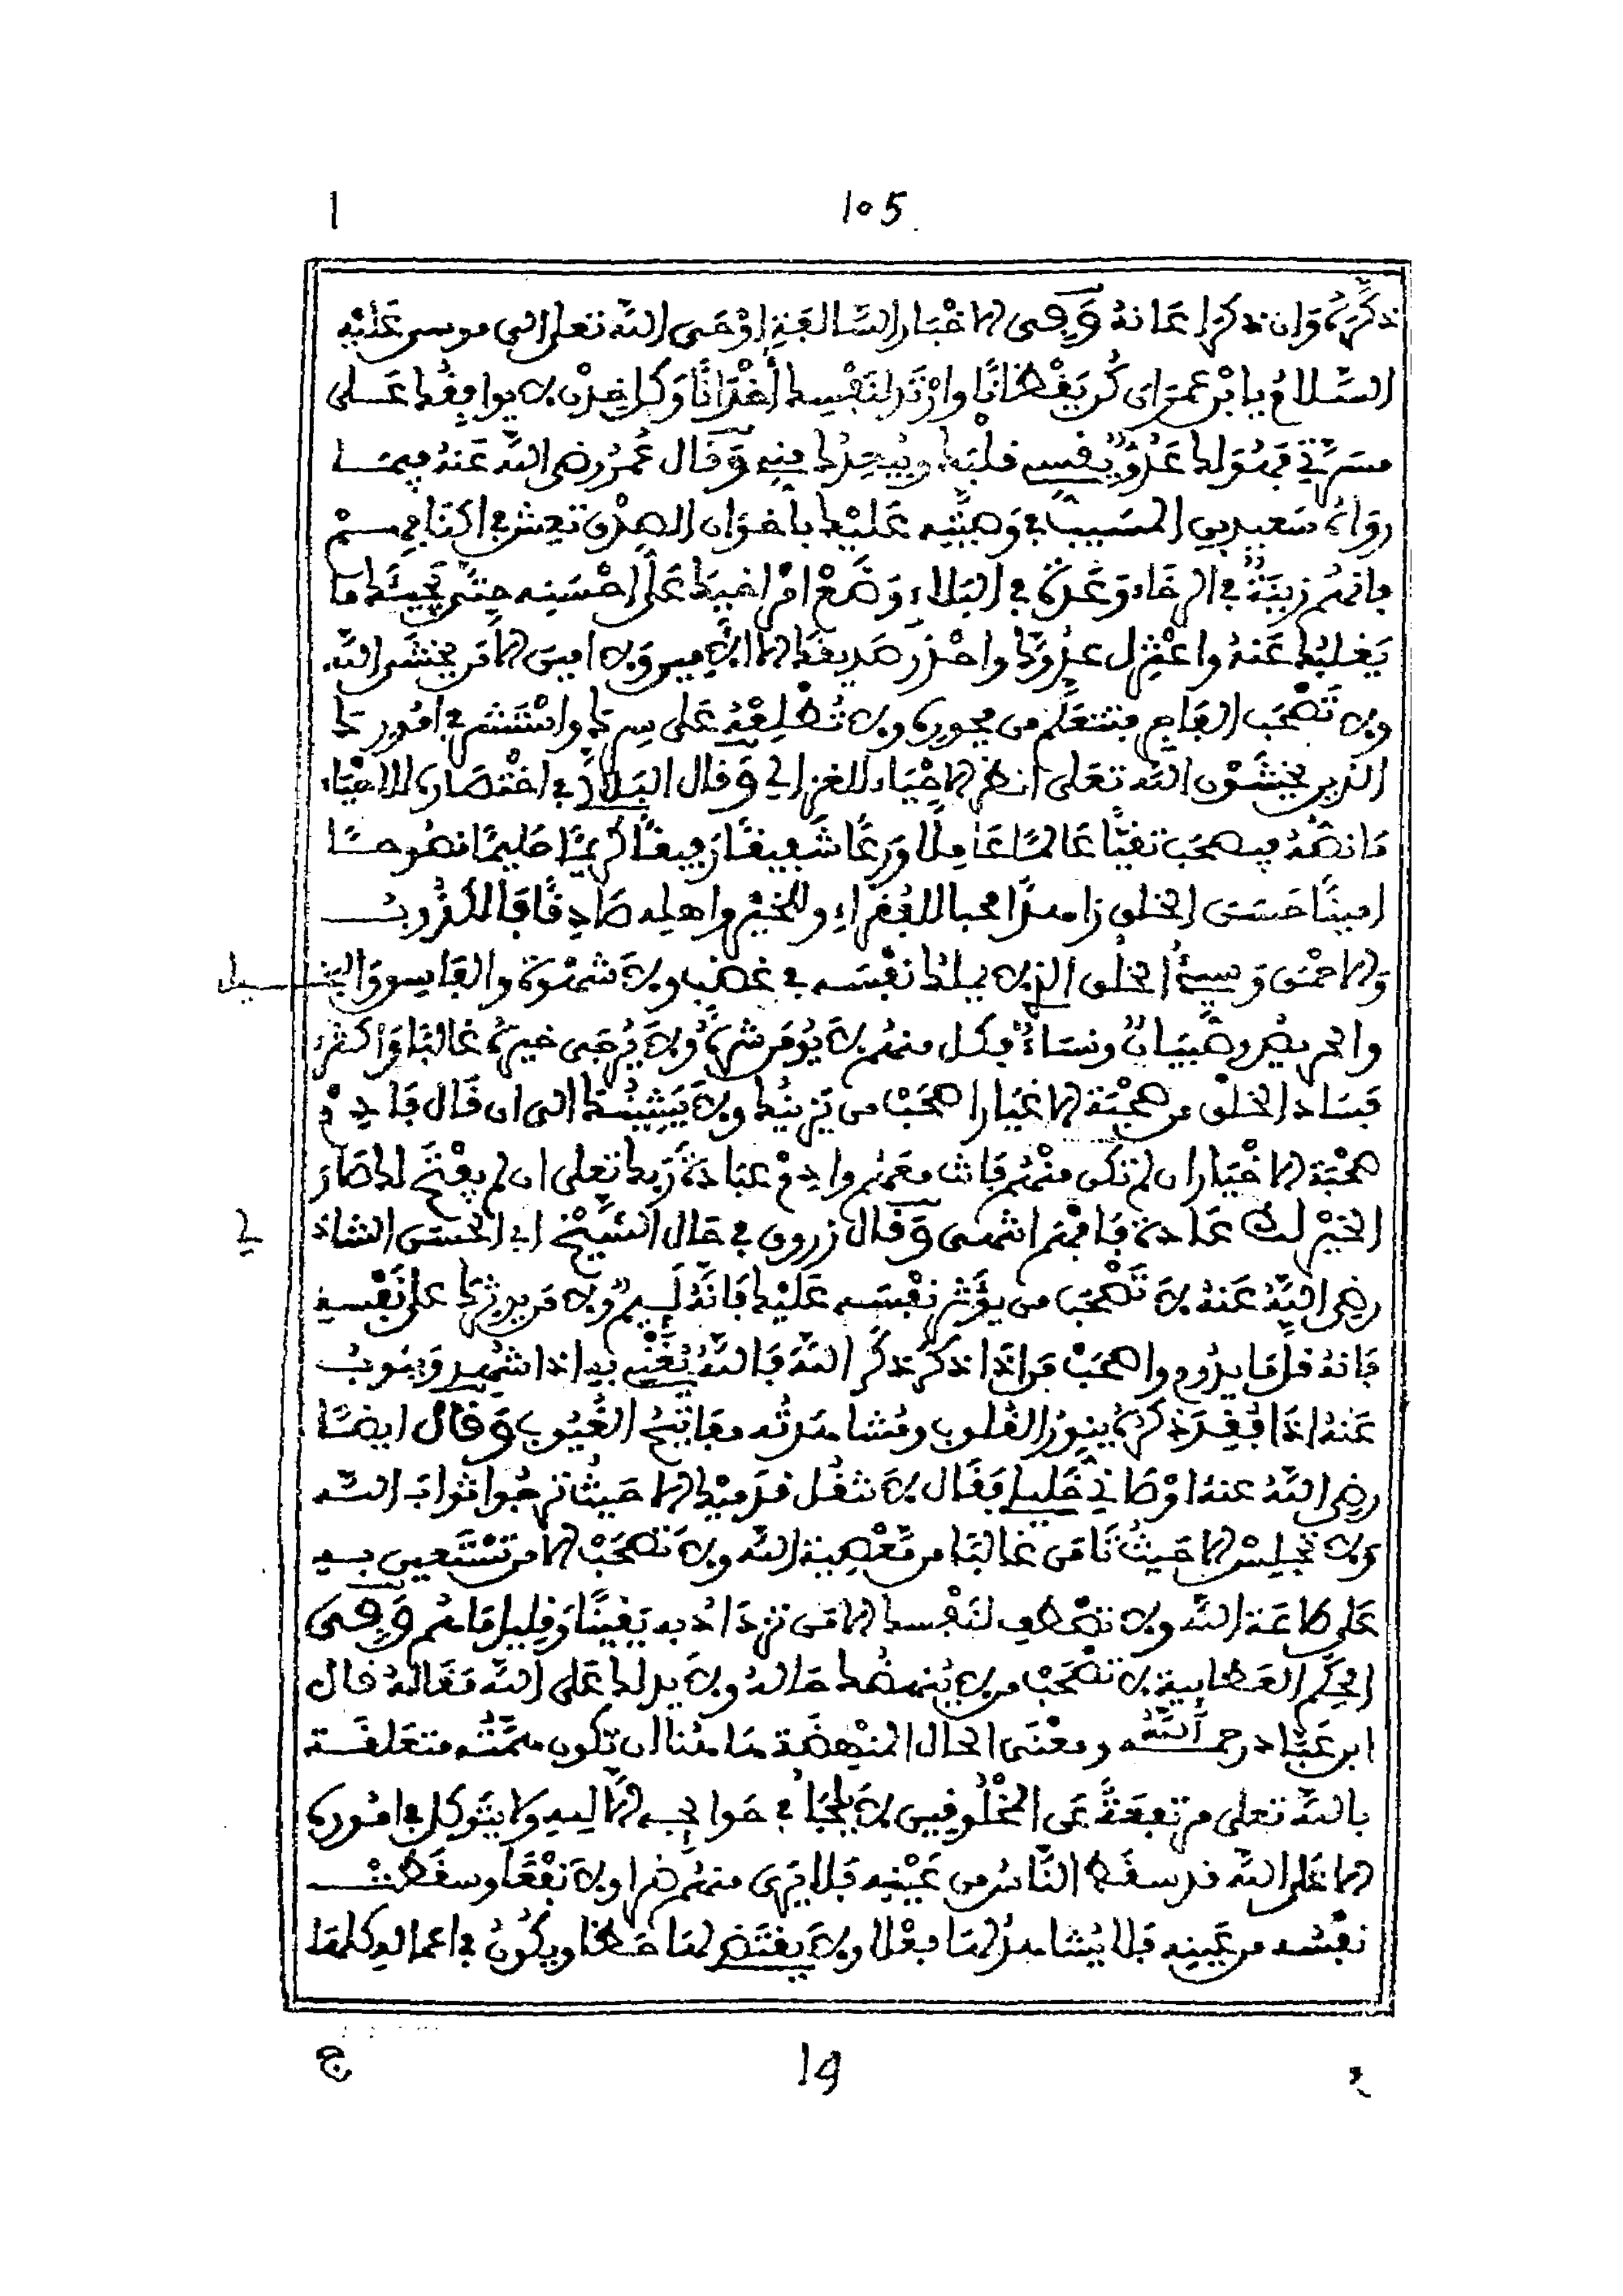 105
ا
ذكّره وان ذكر اعانه وفى الاخبار السالفة اوحى الله تعلى الى موسى عليه
السلام يا ابن عمران كن يقظانا وارتد لنفسك أخدانا وكل خدن لا يوافقك على
مسرتي فهو لك عدو يقسي قلبك ويبعدك منه وقال عمر رضى الله عنه فيما
رواه سعيد بن المسيب في وصيته عليك بإخوان الصدق تعش في اكنافهم
فانهم زينة في الرخاء وعدة في البلاء وضع امر اخيك على احسنه حتى يجيئك ما
يغلبك عنه واعتزل عدوك واحذر صديقك الا الامين ولا امين الا من يخشى الله
ولا تصحب الفاجر فتتعلم من فجوره ولا تطلعه على سرك واستشر في امورك
الذين يخشون الله تعلى انظر الاحياء للغزالي وقال البلالي في اختصاره للاحياء
ما نصه فيصحب تقيا عالما عاملا ورعا شفيقا رفيقا كريما حليما نصوحا
امينا حسن الخلق زاهدا محبا للفقراء وللخير واهله صادقا فالكذوب
والاحمق وسيئ الخلق الذي لا يملك نفسه في غضب ولا شهوة والفاسق والبخيل
والحريص وصبيان ونساء فكل منهم لا يؤمن شره ولا يرجى خيره غالبا واكثر
فساد الخلق من صحبة الاغيار اصحب من يزينك ولا يشينك الى ان قال فادم
صحبة الاخيار ان لم تكن منهم فانت معهم وادم عبادة ربك تعلى ان لم يفتح لك صار
الخير لك عادة فافهم انتهى وقال زروق في قال الشيخ ابى الحسن الشاذ
لي
رضى الله عنه لا تصحب من يؤثر نفسه عليك فانه لئيم ولا من يوثرك على نفسه
فانه قل ما يدوم واصحب من اذا ذكر ذكر الله فالله يغني به اذا شهد وينوب
عنه اذا فقد ذكره ينور القلوب ومشاهدته مفاتيح الغيوب وقال ايضا
رضى الله عنه اوصاني خليلي فقال لا تنقل قدميك الا حيث ترجوا ثواب الله
ولا تجلس الا حيث تامن غالبا من معصية الله ولا تصحب الا من تستعين به
على طاعة الله ولا تصطف لنفسك الا من تزداد به يقينا وقليل ما هم وفى
الحكم العطايية لا تصحب من لا ينهضك حاله ولا يدلك على الله مقاله قال
ابن عباد رحمه الله ومعنى الحال المنهضة هاهنا ان تكون همته متعلقة
بالله تعلى مرتفعة عن المخلوقين لا يلجأ في حوائجه الا اليه ولا يتوكل في اموره
الا على الله قد سقط الناس من عينه فلا يرى منهم ضرا ولا نفعا وسقطت
نفسه من عينه فلا يشاهد لها فعلا ولا يقتضى لها حظا ويكون في اعماله كلها
19
ج